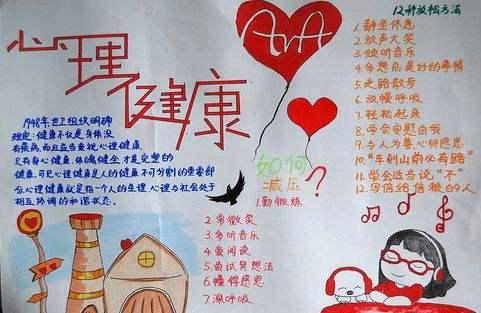 心理健康
AVA
1948年世卫组织明确
规定:健康不仅是身体没
有疾病,而且应当重视心理健康
只有身心健康、体魄健全才是完整的
健康,可见心理健康是人的健康不可分割的重要部
分,心理健康就是指一个人的生理、心理与社会处于
相互协调的和谐状态。
如何
减压?
1.勤锻炼
2.常微笑
3.多听音乐
4.爱阅读
5.尝试冥想法
6.懂得感恩
7.深呼吸
12种放松方法
1.静坐休息
2.放声大笑
3.倾听音乐
4.多想点美好的事情
5.走路散步
6.放慢呼吸
7.轻松起床
8.学会安慰自我
9.与人为善心怀感恩
10."车到山前必有路"
11.学会适当说"不"
12.写信给信赖的人